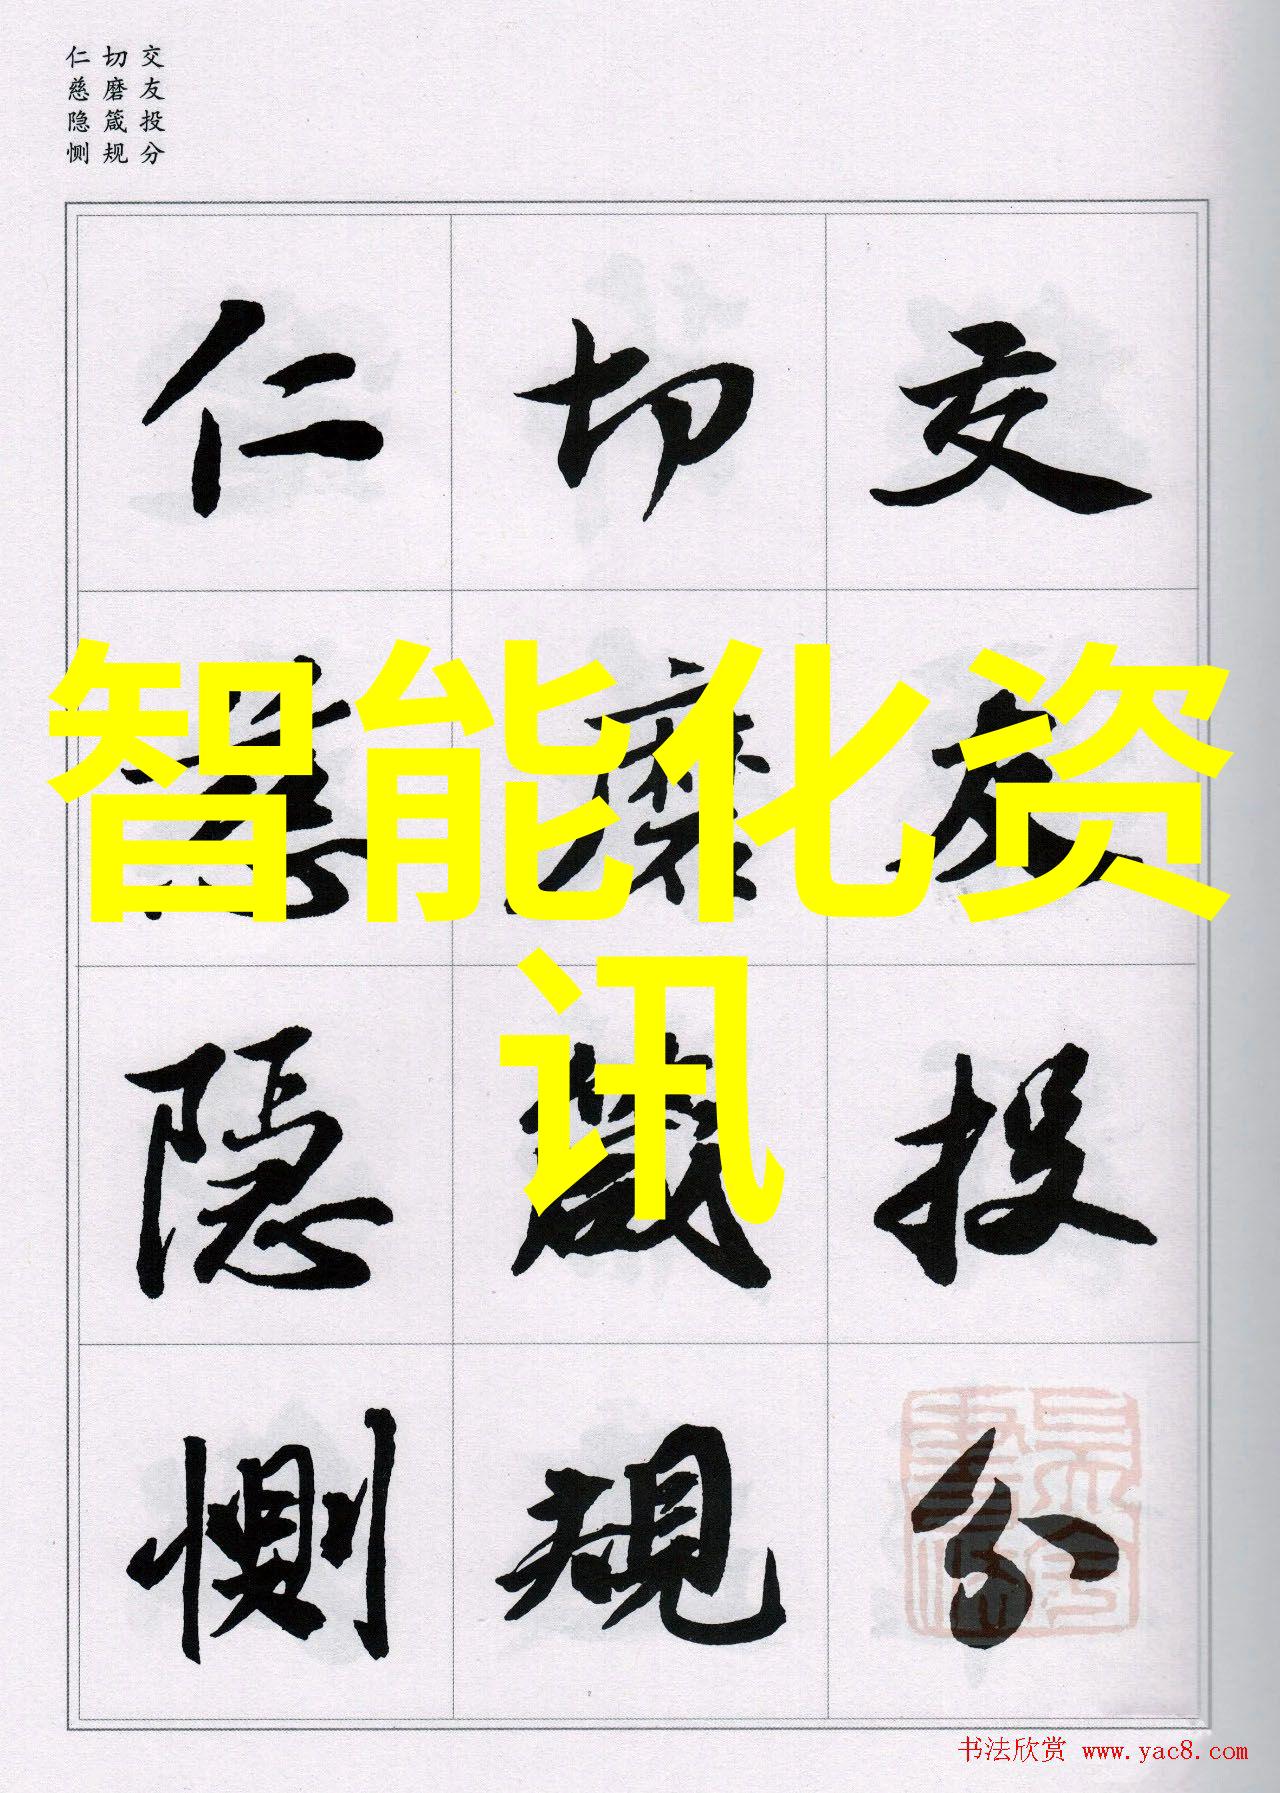 交友投分
切磨箴规
仁慈隐恻
交友投分
切磨箴规
仁慈隐恻
智能化资
讯
书法欣赏 www.yac8.com